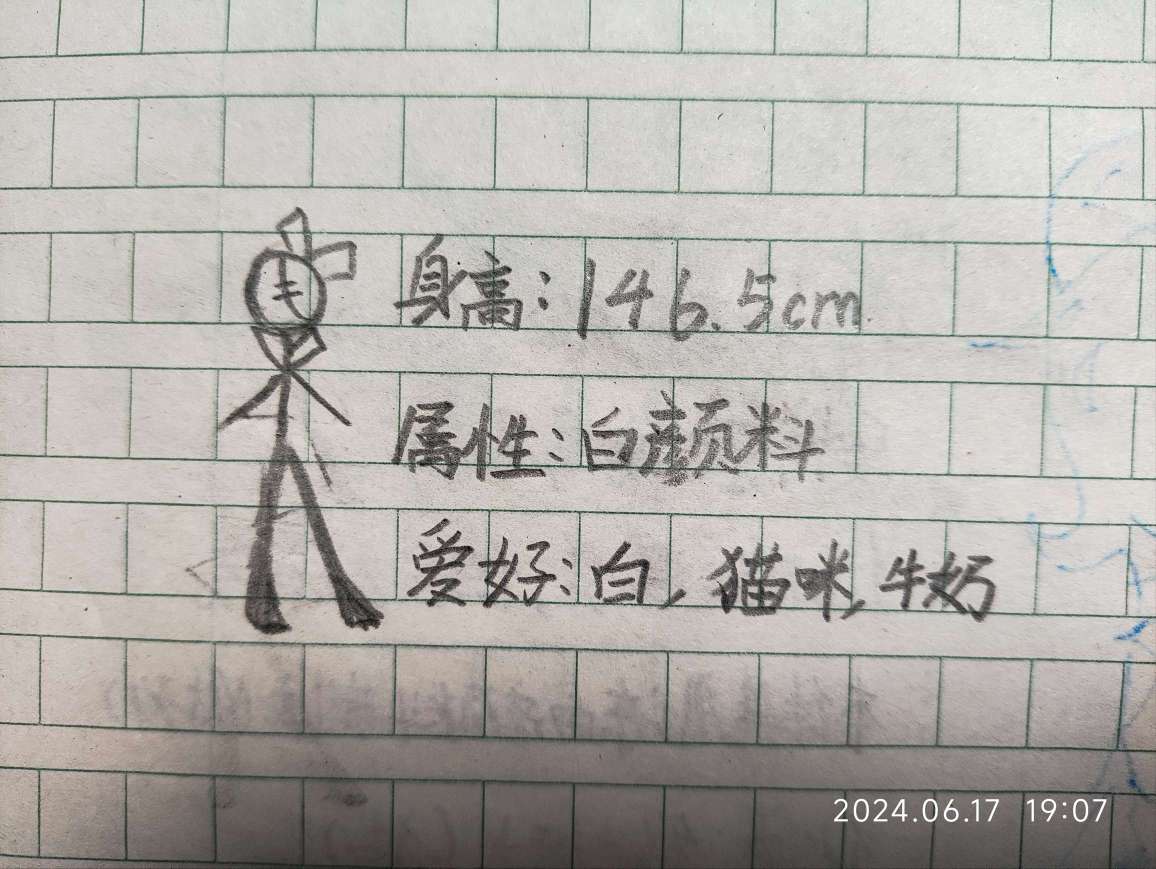 身高:146.5cm
属性:白颜料
爱好:白,猫咪,牛奶
2024.06.17 19:07